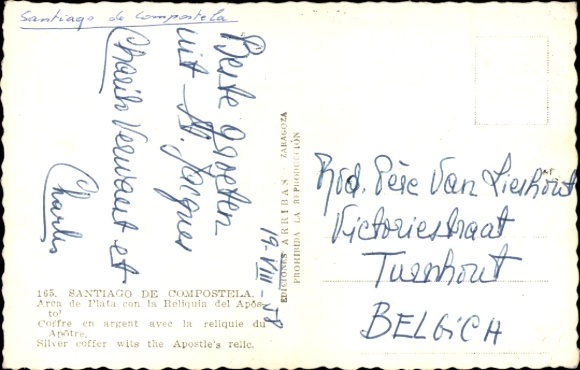 Santiago de Compostela
Beste Groeten
uit St. Jacques
Charles
19-VIII-58
EDICIONES ARRIBAS - ZARAGOZA
PROHIBIDA LA REPRODUCCION
Rvd. Père Van Lieshout
Victoriestraat
Turnhout
BELGICA
165. SANTIAGO DE COMPOSTELA.
Arca de Plata con la Reliquia del Após-
tol
Coffre en argent avec la relique du
Apôtre.
Silver coffer wits the Apostle's relic.